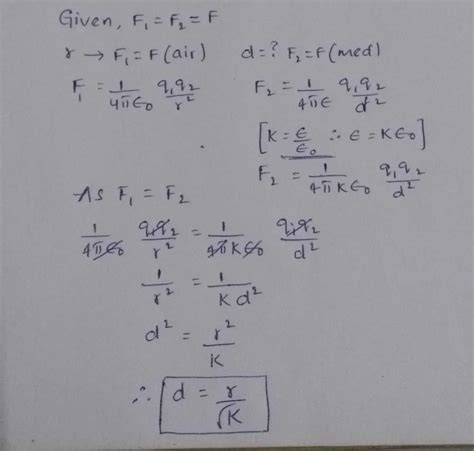 Given, F₁ = F₂ = F
r → F₁ = F (air)    d = ? F₂ = F (med)
F₁ = 1/4πϵ₀ q₁q₂/r²    F₂ = 1/4πϵ q₁q₂/d²
[K = ϵ/ϵ₀ ∴ ϵ = Kϵ₀]
F₂ = 1/4πKϵ₀ q₁q₂/d²
As F₁ = F₂
1/4πϵ₀ q₁q₂/r² = 1/4πKϵ₀ q₁q₂/d²
1/r² = 1/Kd²
d² = r²/K
∴ d = r/√K